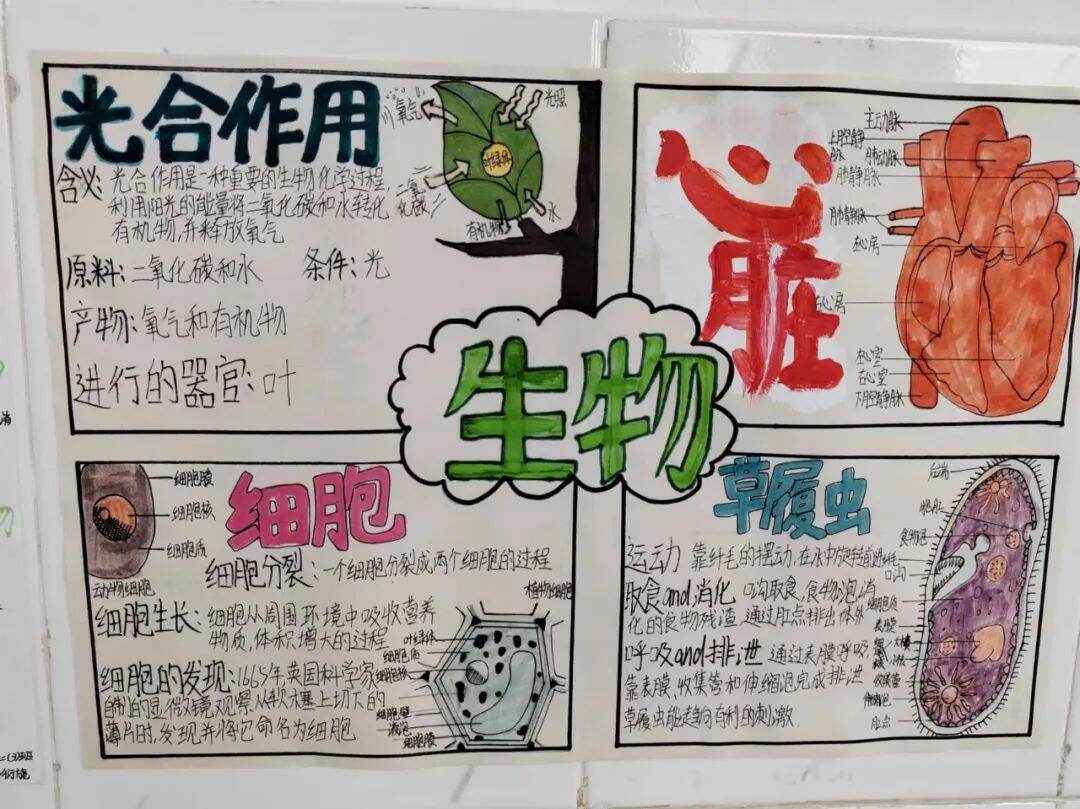 光合作用
含义:光合作用是一种重要的生物化学过程,
利用阳光的能量将二氧化碳和水转化
有机物,并释放氧气
原料:二氧化碳和水 条件:光
产物:氧气和有机物
进行的器官:叶
氧气
光照
叶绿体
二氧
化碳
有机物
水
心脏
主动脉
上腔静
脉
肺动脉
肺静脉
肺静脉
左心房
右心房
左心室
右心室
下腔静脉
生物
细胞膜
细胞核
细胞质
动物细胞
细胞
细胞分裂:一个细胞分裂成两个细胞的过程
细胞生长:细胞从周围环境中吸收营养
物质,体积增大的过程
细胞的发现:1665年英国科学家
自制的显微镜观察从软木塞上切下的
薄片时,发现并将它命名为细胞
植物细胞
叶绿体
细胞质
细胞核
细胞壁
液泡
细胞膜
草履虫
运动 靠纤毛的摆动,在水中旋转前进
取食and消化 口沟取食,食物泡消
化的食物残渣 通过肛点排出体外
呼吸and排泄 通过表膜呼吸
靠表膜,收集管和伸缩泡完成排泄
草履虫能趋向有利的刺激
后端
胞肛
食物泡
纤毛
口沟
细胞质
表膜
大核
小核
收集管
伸缩泡